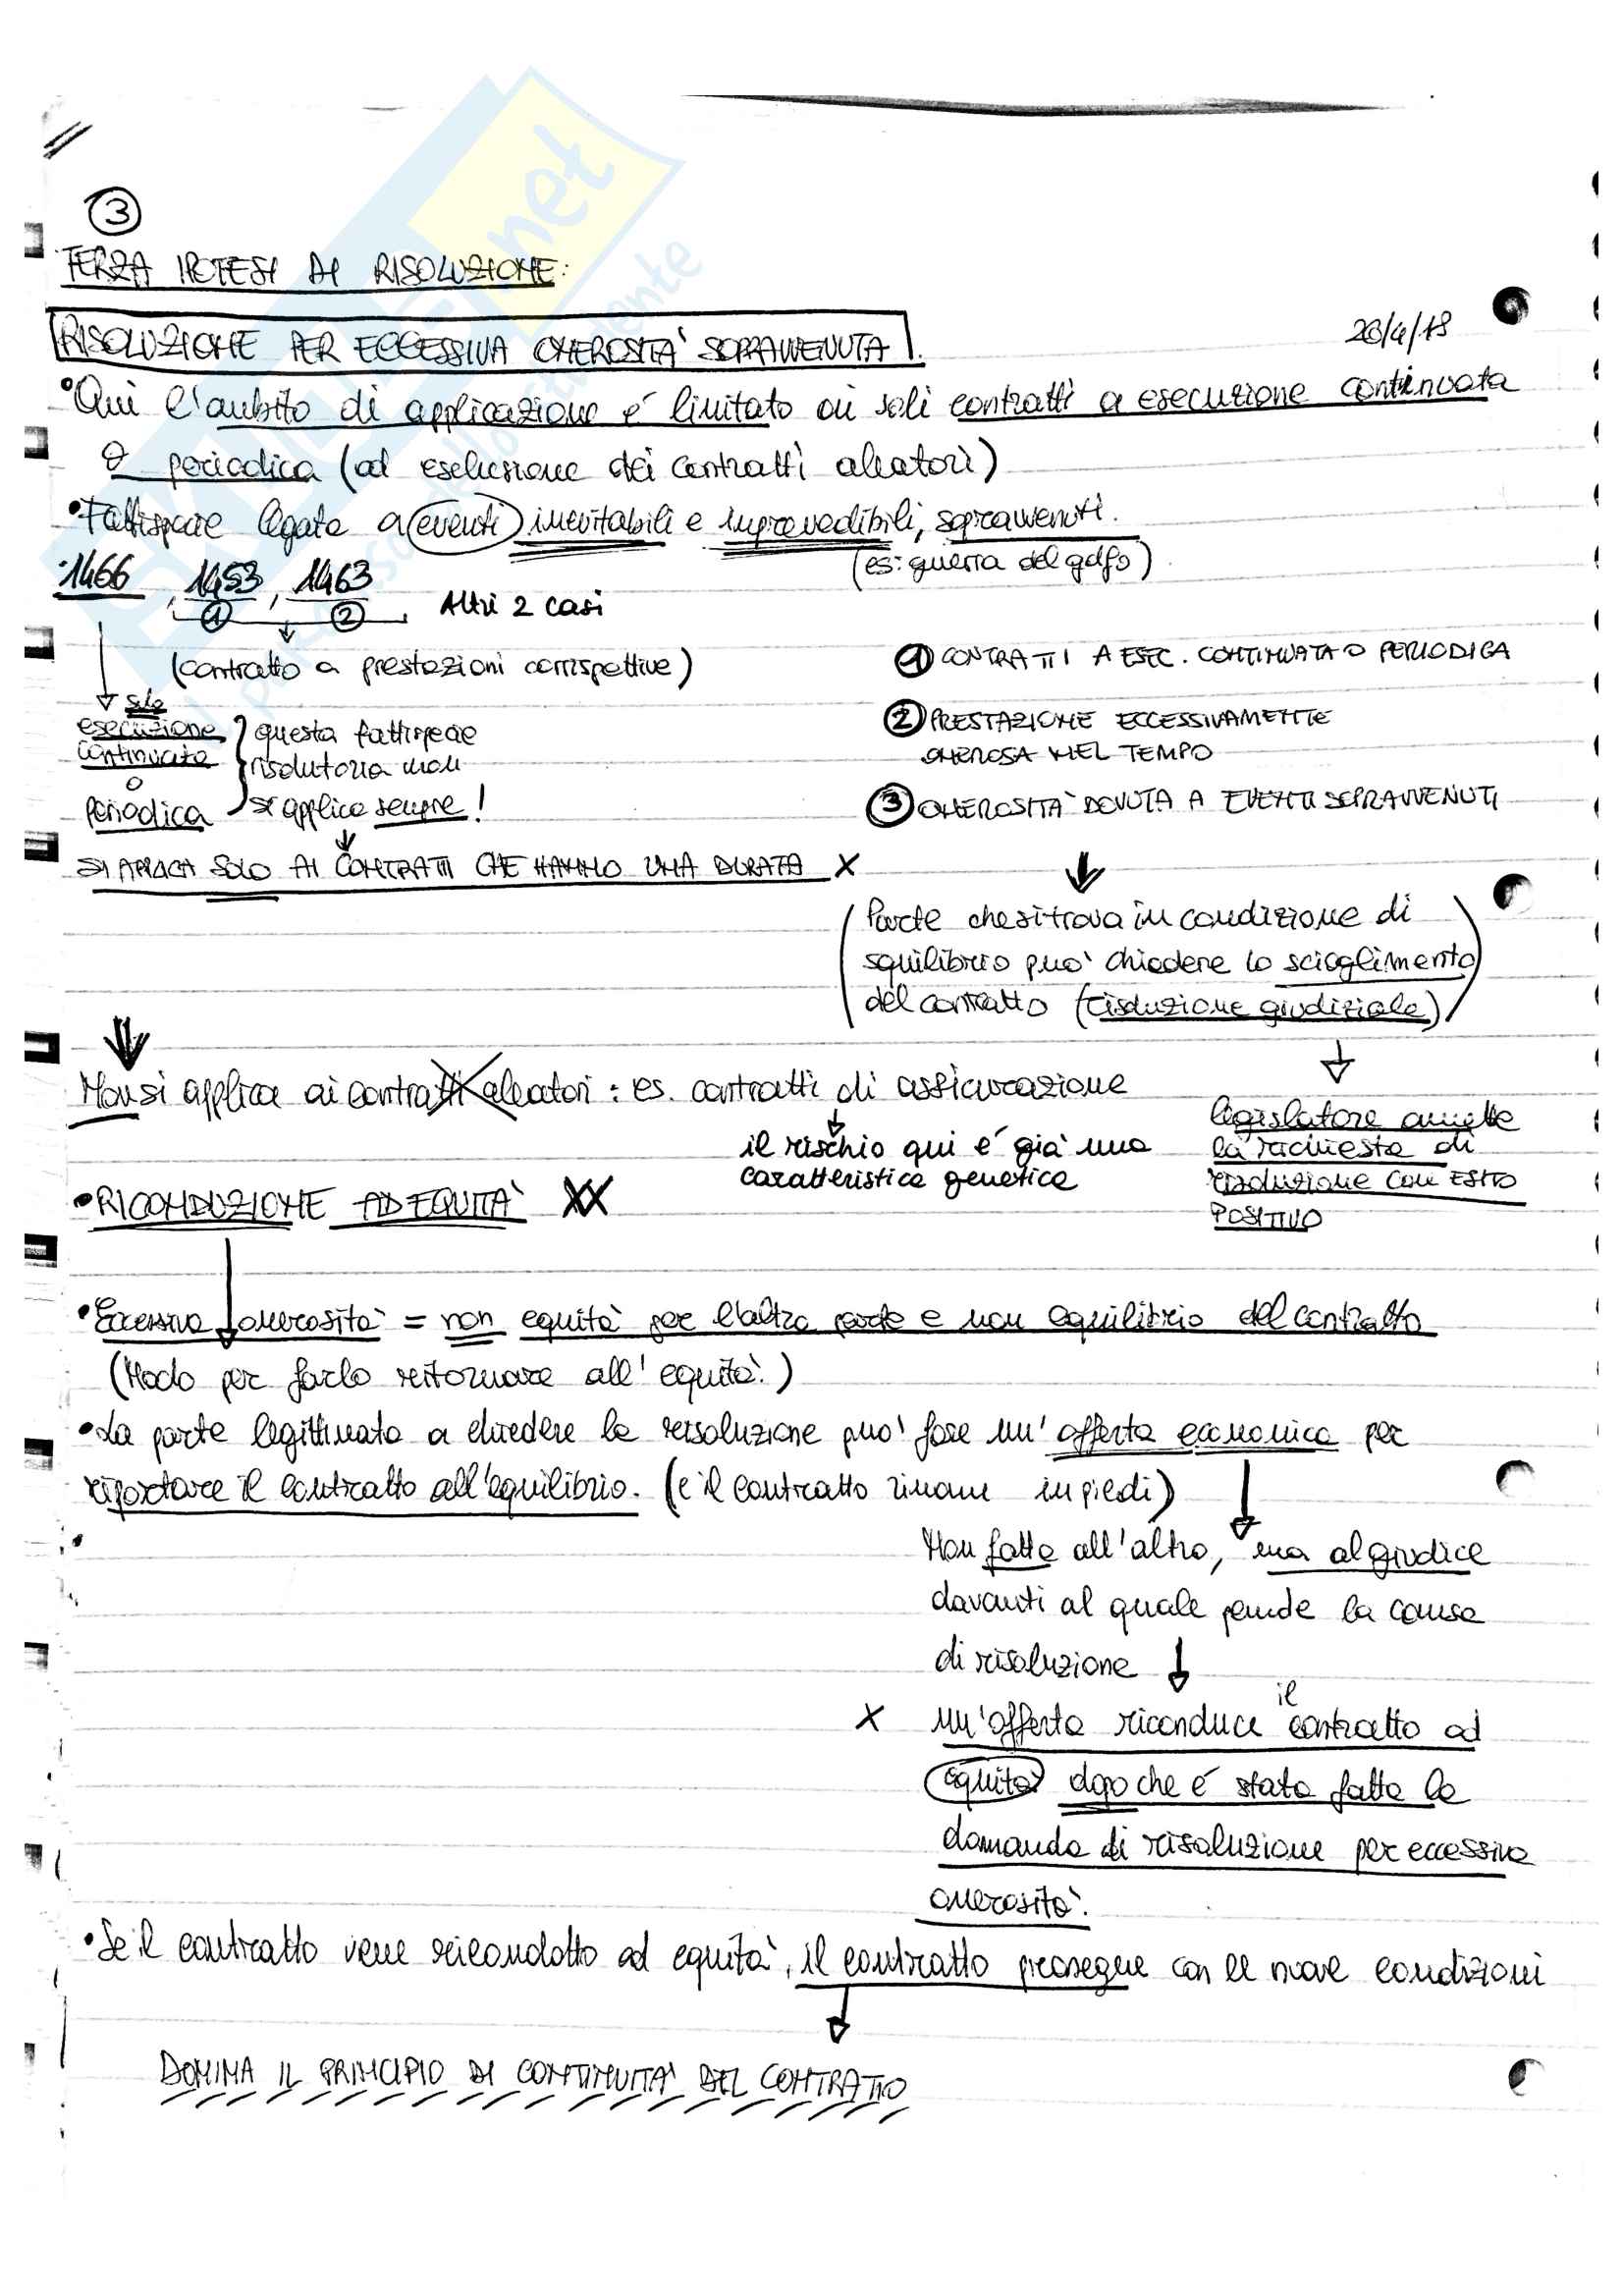 ③
TERZA IPOTESI DI RISOLUZIONE:
RISOLUZIONE PER ECCESSIVA ONEROSITÀ SOPRAVVENUTA.
26/4/18
• Qui l'ambito di applicazione é limitato ai soli contratti a esecuzione continuata
o periodica (ad esclusione dei contratti aleatori)
• Fattispecie legata a eventi inevitabili e imprevedibili, sopravvenuti.
(es: guerra del golfo)
• 1466, 1453, 1463 Altri 2 casi
① ②
(contratto a prestazioni corrispettive)
solo
esecuzione
continuata
o
periodica
questa fattispecie
risolutoria non
si applica sempre!
SI APPLICA SOLO AI CONTRATTI CHE HANNO UNA DURATA X
① CONTRATTI A ESEC. CONTINUATA O PERIODICA
② PRESTAZIONE ECCESSIVAMENTE
ONEROSA NEL TEMPO
③ ONEROSITÀ DOVUTA A EVENTI SOPRAVVENUTI
(Parte che si trova in condizione di
squilibrio può chiedere lo scioglimento
del contratto (risoluzione giudiziale))
Non si applica ai contratti aleatori: es. contratti di assicurazione
il rischio qui é già una
caratteristica genetica
legislatore ammette
la richiesta di
risoluzione con ESITO
POSITIVO
• RICONDUZIONE AD EQUITÀ XX
• Eccessiva onerosità = non equità per l'altra parte e non equilibrio del contratto
(Modo per farlo ritornare all'equità.)
• La parte legittimata a chiedere la risoluzione può fare un'offerta economica per
riportare il contratto all'equilibrio. (e il contratto rimane in piedi)
Non fatta all'altro, ma al giudice
davanti al quale pende la causa
di risoluzione
X un'offerta riconduce il contratto ad
equità dopo che é stata fatta la
domanda di risoluzione per eccessiva
onerosità.
• Se il contratto viene ricondotto ad equità, il contratto prosegue con le nuove condizioni
DOMINA IL PRINCIPIO DI CONTINUITÀ DEL CONTRATTO